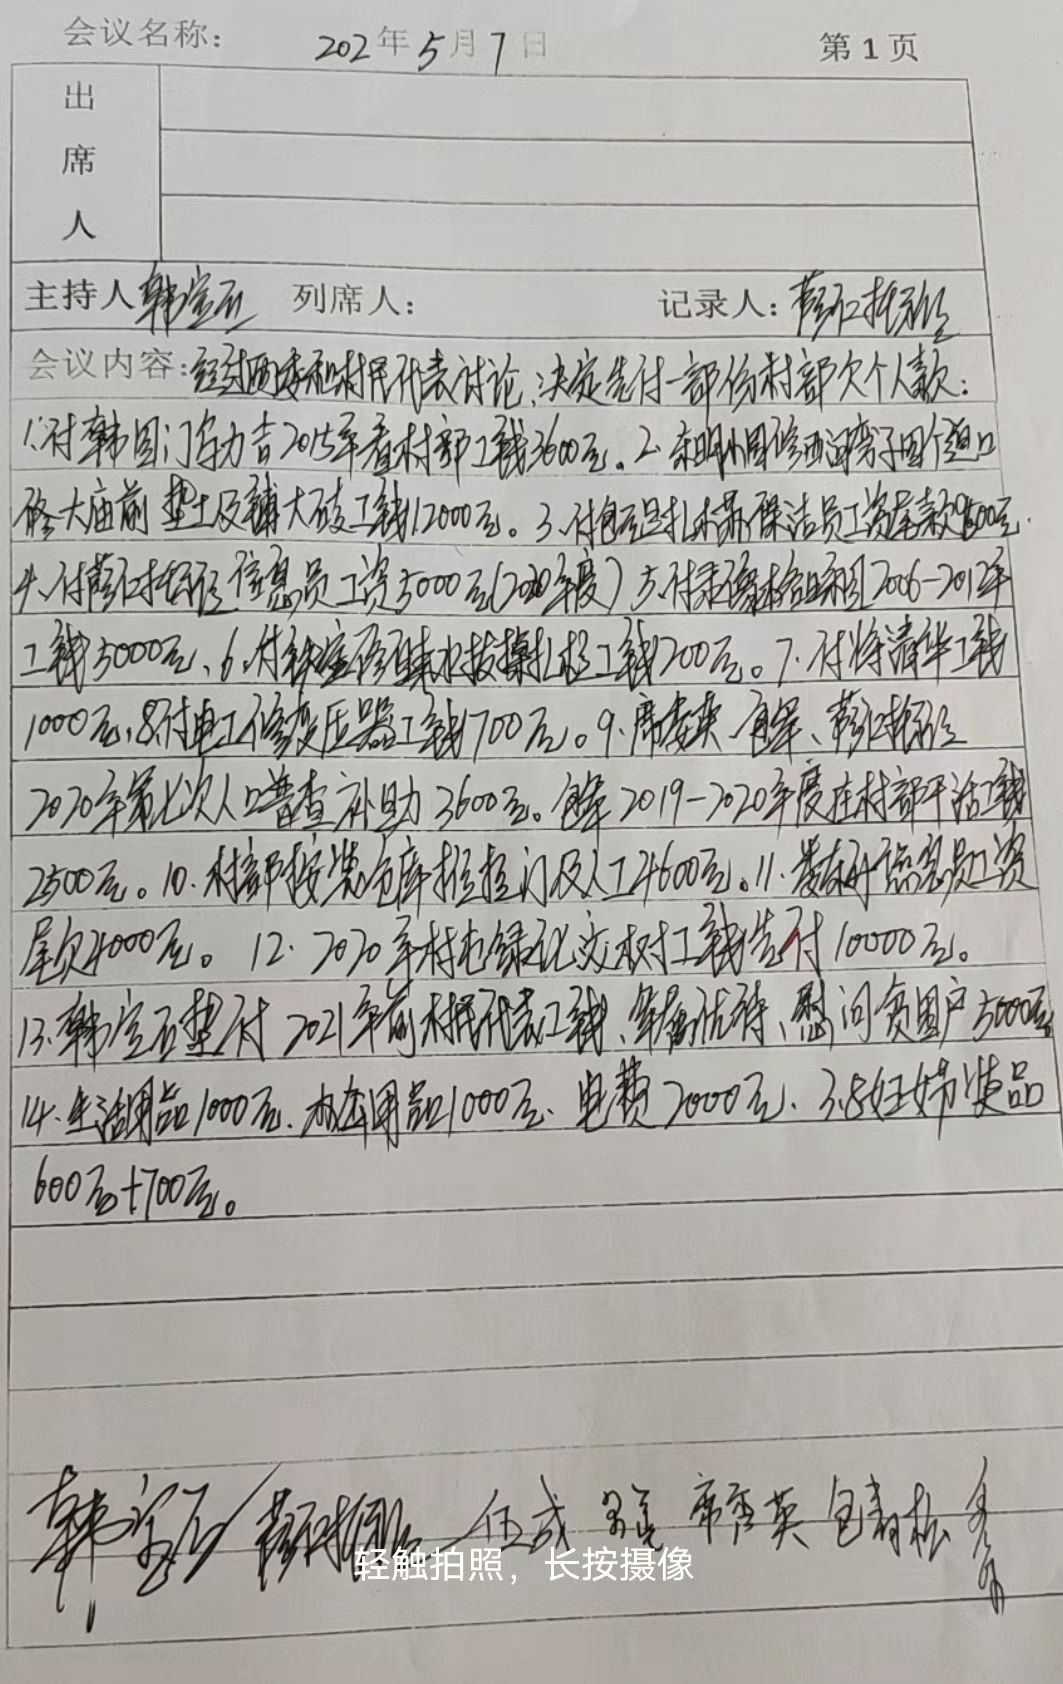 会议名称: 202 年 5 月 7 日 第 1 页
出
席
人
主持人 韩宝石 列席人: 记录人:
会议内容: 经过两委和村民代表讨论、决定先付一部份村部欠个人款:
1.付韩国门乌力吉2015年看村部工钱3600元。2.
修大庙前垫土及铺大砖工钱12000元。3.付 保洁员工资尾款
4.付 信息员工资5000元(2020年度) 5.付 2006-2012年
工钱5000元、6.付 工钱1200元。7.付 清华工钱
1000元、8付电工修变压器工钱700元。9.席秀英 包军、
2020年第七次人口普查补助3600元。包军2019-2020年度在村部干活工钱
2500元。10.村部按装仓库推拉门及人工4600元。11. 信息员工资
尾欠4000元。 12.2020年村屯绿化 树工钱先付10000元。
13.韩宝石垫付 2021年前村民代表工钱、军属优待、慰问贫困户5000元
14.生活用品1000元、办公用品1000元、电费2000元、3.8妇女节奖品
600元+700元。
韩宝石 伍成 席秀英 包青松
轻触拍照，长按摄像